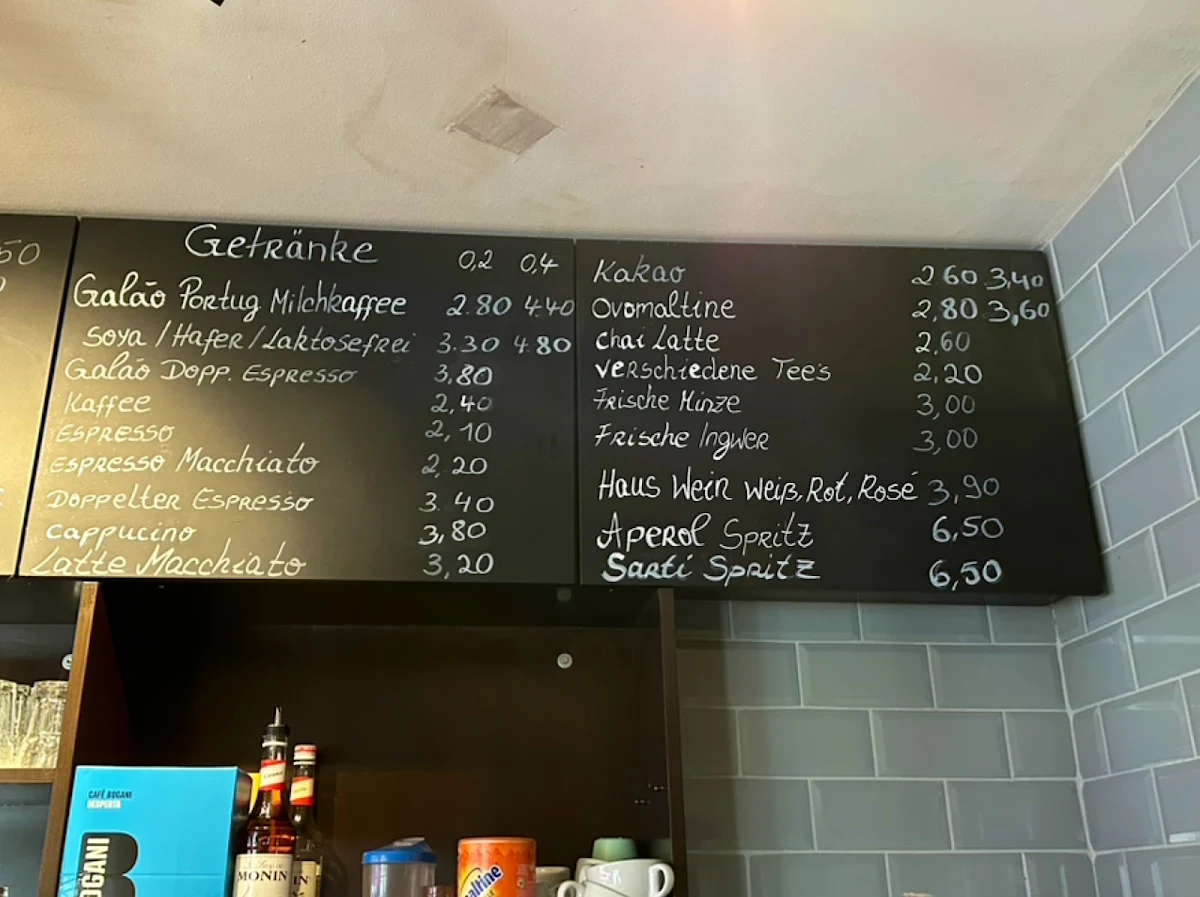 50
Getränke 0,2 0,4
Galão Portug Milchkaffee 2.80 4.40
Soya / Hafer / Laktosefrei 3.30 4.80
Galão Dopp. Espresso 3,80
Kaffee 2,40
Espresso 2,10
Espresso Macchiato 2,20
Doppelter Espresso 3.40
Cappucino 3,80
Latte Macchiato 3,20
Kakao 2 60 3,40
Ovomaltine 2,80 3,60
Chai Latte 2,60
Verschiedene Tee's 2,20
Frische Minze 3,00
Frische Ingwer 3,00
Haus Wein Weiß, Rot, Rosé 3,90
Aperol Spritz 6,50
Sarti Spritz 6,50
CAFÉ BOGANI
DESPERTA
OGANI
MONIN
IN
altine